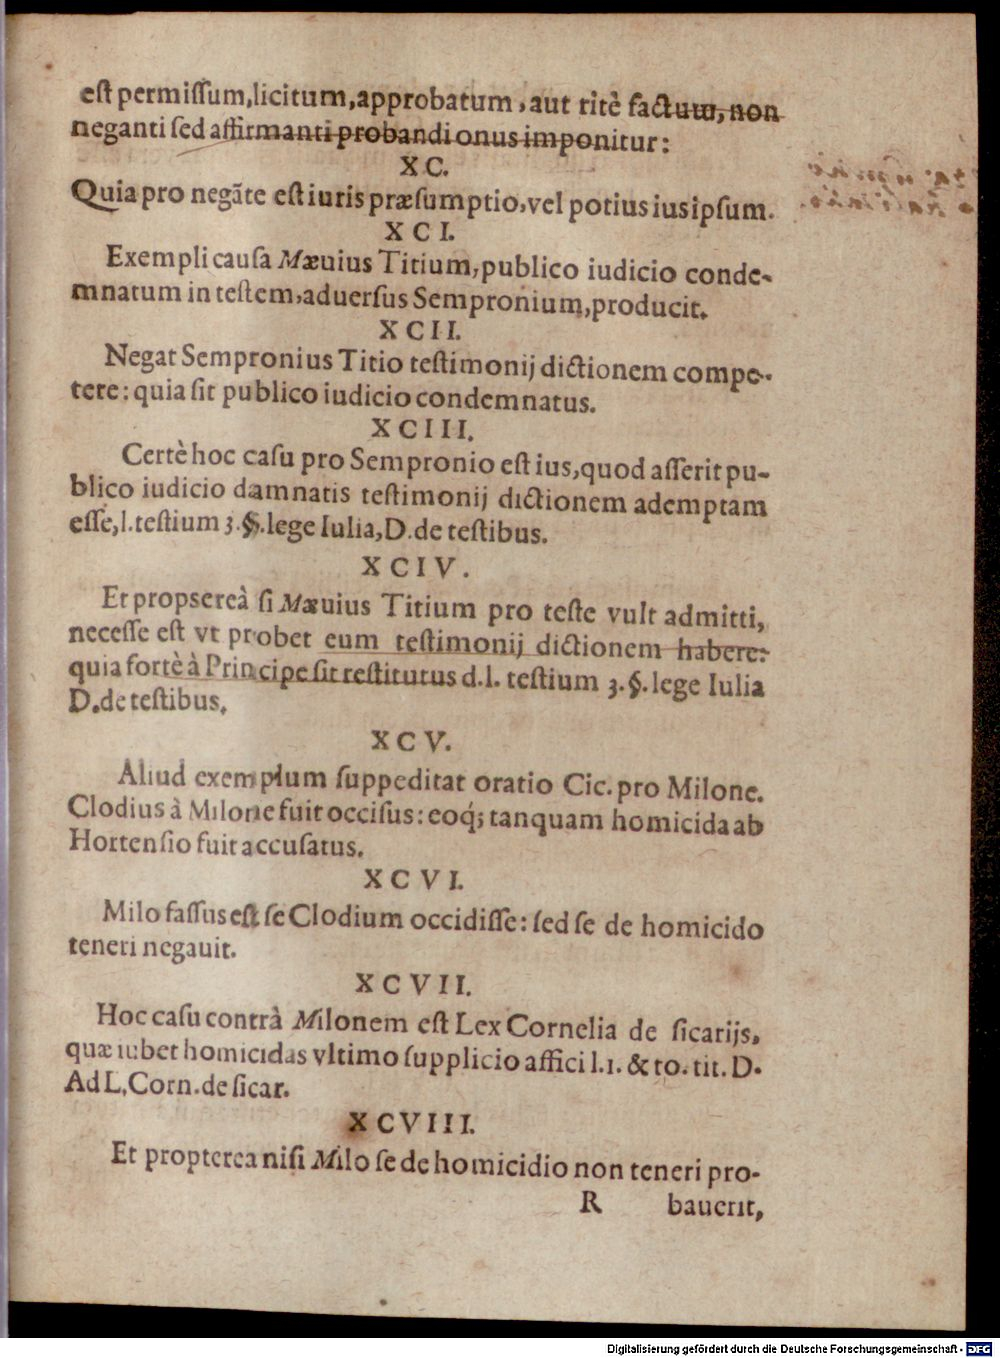 est permissum, licitum, approbatum, aut ritè factum, non
neganti sed affirmanti probandi onus imponitur:
XC.
Quia pro negāte est iuris præsumptio, vel potius ius ipsum.
XCI.
Exempli causa Mæuius Titium, publico iudicio conde-
mnatum in testem, aduersus Sempronium, producit.
XCII.
Negat Sempronius Titio testimonij dictionem compe-
tere: quia sit publico iudicio condemnatus.
XCIII.
Certè hoc casu pro Sempronio est ius, quod asserit pu-
blico iudicio damnatis testimonij dictionem ademptam
esse, l. testium 3. §. lege Iulia, D. de testibus.
XCIV.
Et propsereà si Mæuius Titium pro teste vult admitti,
necesse est vt probet eum testimonij dictionem habere:
quia fortè à Principe sit restitutus d. l. testium 3. §. lege Iulia
D. de testibus.
XCV.
Aliud exemplum suppeditat oratio Cic. pro Milone.
Clodius à Milone fuit occisus: eoq́; tanquam homicida ab
Hortensio fuit accusatus.
XCVI.
Milo fassus est se Clodium occidisse: sed se de homicido
teneri negauit.
XCVII.
Hoc casu contrà Milonem est Lex Cornelia de sicarijs,
quæ iubet homicidas vltimo supplicio affici l. 1. & to. tit. D.
Ad L. Corn. de sicar.
XCVIII.
Et propterea nisi Milo se de homicidio non teneri pro-
R bauerit,
Digitalisierung gefördert durch die Deutsche Forschungsgemeinschaft - DFG